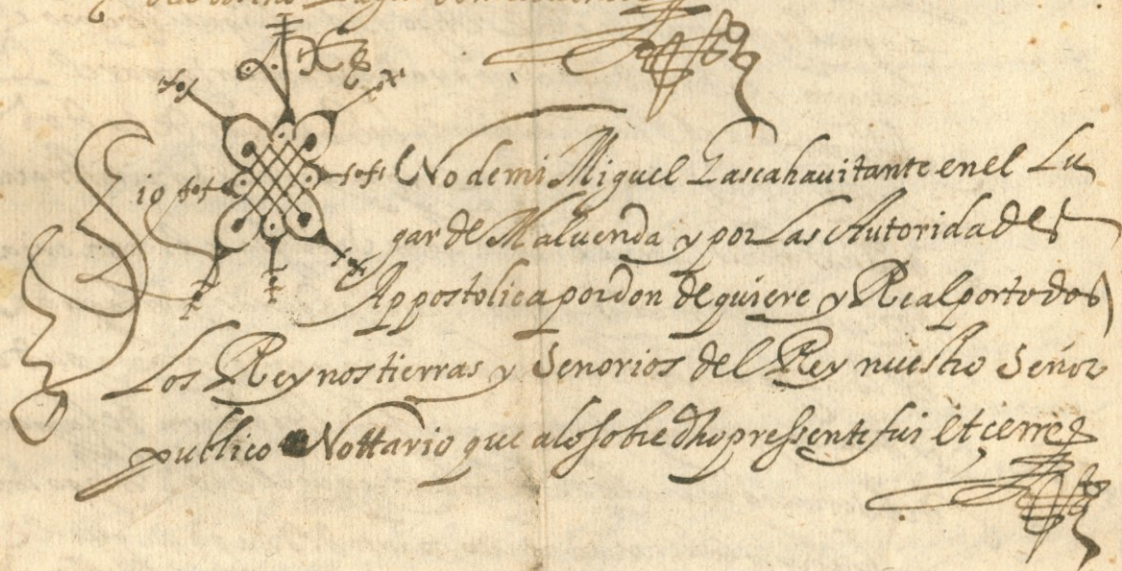 Sig No de mi Miguel Lasca havitante en el Lu
gar de Maluenda y por Las Autoridades
Appostolica por don de quiere y Real por todos
Los Reynos tierras y Senorios del Rey nuestro Señor
publico Nottario que a lo sobre dho pressente fui Et cerre